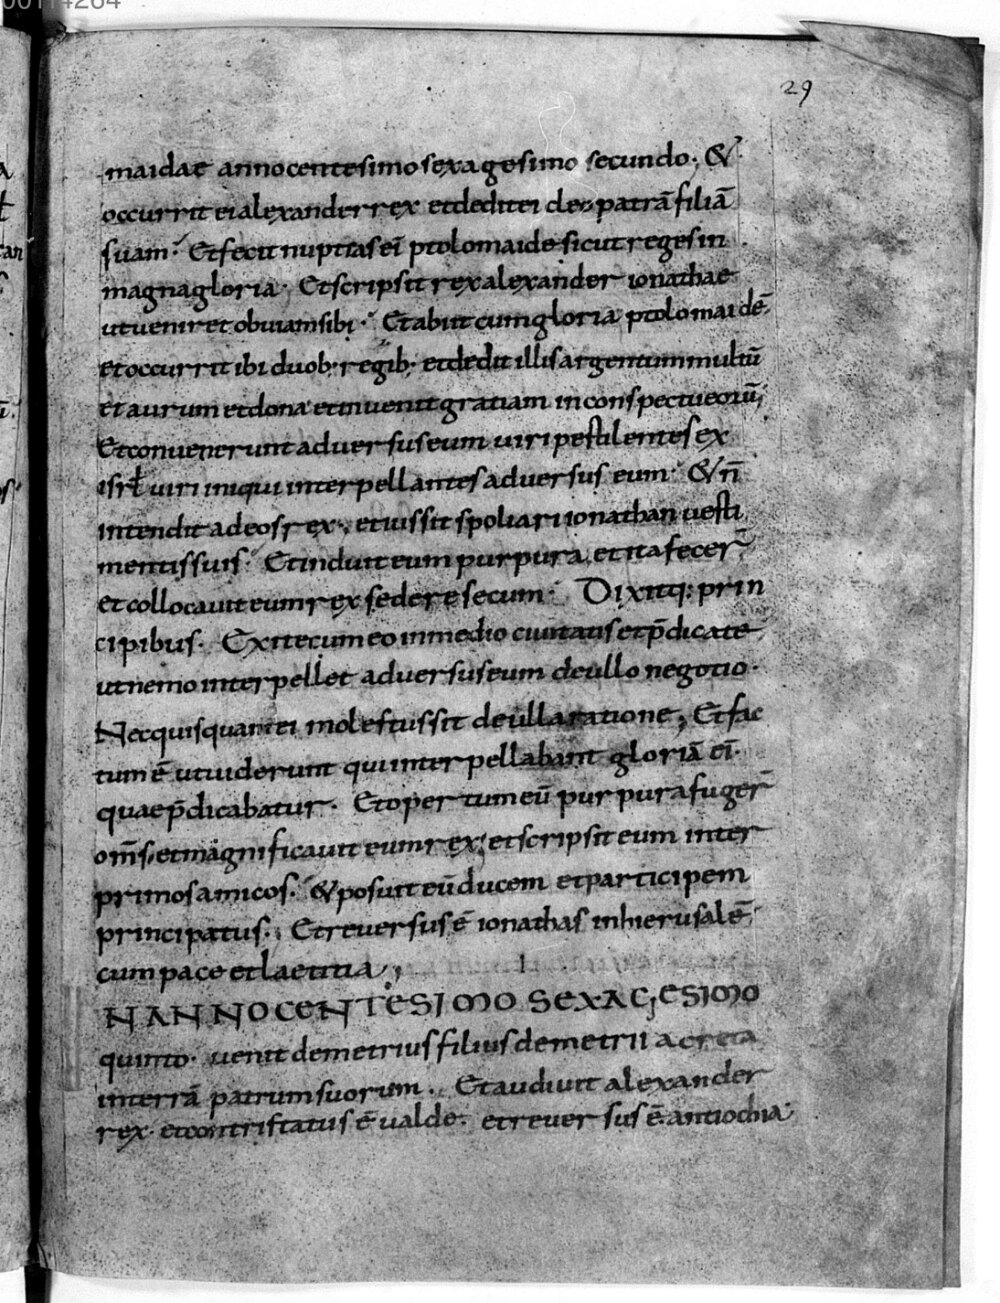 29
maidae anno centesimo sexagesimo secundo. &
occurrit ei alexander rex et dedit ei cleopatrā filiā
suam. Et fecit nuptias ei ptolomaide sicut reges in
magna gloria. Et scripsit rex alexander ionathae
ut veniret obviam sibi. Et abiit cum gloria ptolomaidē
et occurrit ibi duob. regib. et dedit illis argentum multū
et aurum et dona et invenit gratiam in conspectu eorū;
Et convenerunt adversus eum viri pestilentes ex
isrł viri iniqui interpellantes adversus eum. & n̄
intendit ad eos rex. et iussit spoliari ionathan vesti
mentis suis. Et induit eum purpura, et ita fecer̄
et collocavit eum rex sedere secum. Dixitq: prin
cipibus. Exite cum eo in medio civitatis et p̄dicate
ut nemo interpellet adversus eum de ullo negotio.
Nec quisquam ei molestus sit de ulla ratione; Et fac
tum ē ut viderunt qui interpellabant gloriā ei.
quae p̄dicabatur. Et opertum eū purpura fuger̄
om̄s, et magnificavit eum rex; et scripsit eum inter
primos amicos. & posuit eū ducem et participem
principatus. Et reversus ē ionathas in hierusalē
cum pace et laetitia;
IN ANNO CENTESIMO SEXAGESIMO
quinto. venit demetrius filius demetrii a creta
in terrā patrum suorum. Et audivit alexander
rex. et contristatus ē valde. et reversus ē antiochia.